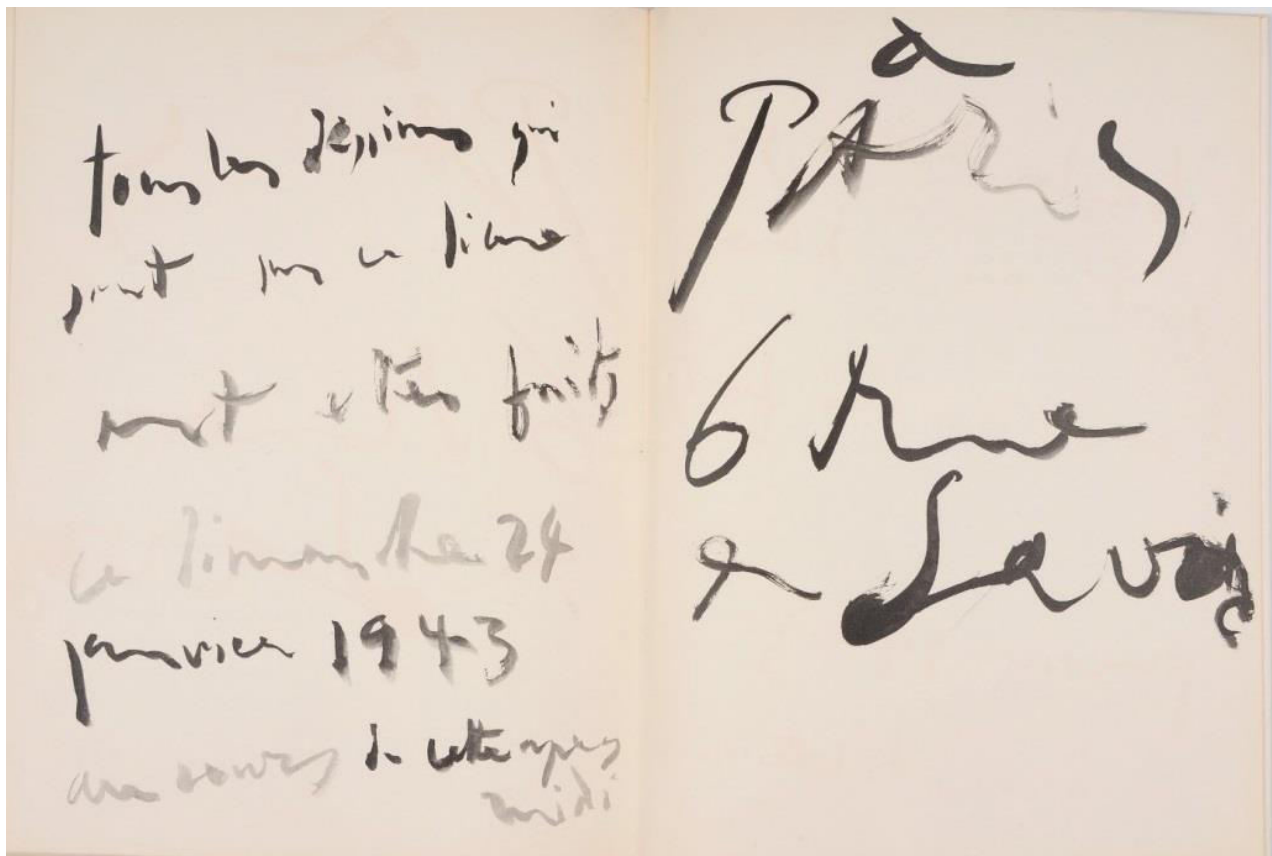 tous les dessins qui
sont sur ce livre
ont etes faits
ce dimanche 24
janvier 1943
au cours de cette apres
midi
à
PAris
6 rue
de Savoie